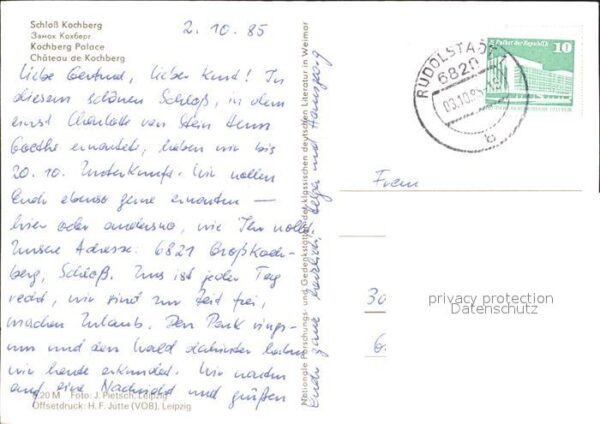 Schloß Kochberg
Замок Кохберг
Kochberg Palace
Château de Kochberg
2. 10. 85
Liebe Gertrud, lieber Kurd! In
diesem schönen Schloß, in dem
einst Charlotte von Stein Herrn
Goethe erwartete, haben wir bis
20. 10. Unterkunft. Wir wollen
Euch ebenso gerne erwarten –
hier oder anderswo, wie Ihr wollt.
Unsere Adresse: 6821 Großkoch-
berg, Schloß. Uns ist jeder Tag
recht, wir sind zur Zeit frei,
machen Urlaub. Den Park rings-
um und den Wald dahinter haben
wir heute erkundet. Wir warten
auf eine Nachricht und grüßen
Euch ganz herzlich, Helga und Hansgeorg
6,20 M Foto: J. Pietsch, Leipzig
Offsetdruck: H. F. Jütte (VOB), Leipzig
Nationale Forschungs- und Gedenkstätten der klassischen deutschen Literatur in Weimar
RUDOLSTADT
6820
Palast der Republik 10
Frau
30
privacy protection
Datenschutz